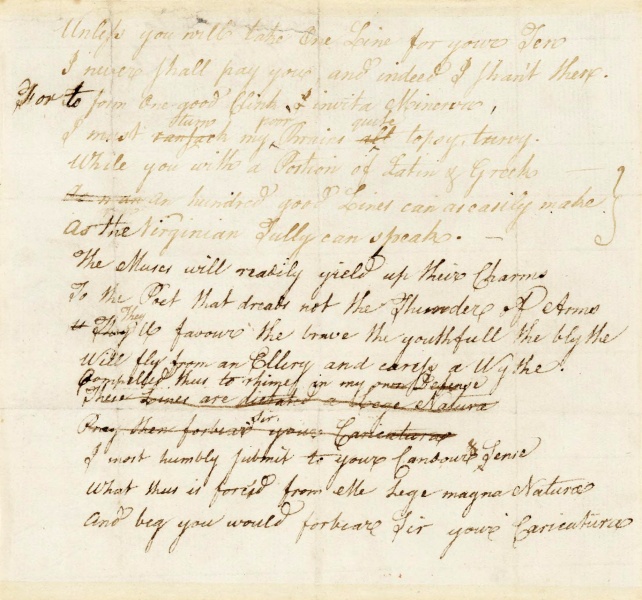 Unless you will take one Line for your Ten
I never shall pay you, and indeed I shan't then.
For to join one good Clink, invita Minerva,
I must ransack turn my poor Brains all quite topsy, turvy.
While you with a Portion of Latin & Greek
an hundred good Lines can as easily make
as the Virginian Tully can speak. —
The Muses will readily yield up their Charms
To the Poet that dreads not the Thunder of Arms
They'll favour the brave the youthfull the blythe
Will fly from an Ellery and caress a Wythe.
Compelled thus to rhime, in my own Defence
These Lines are dictated a Lege Natura
Pray then forbear Sir your Caricatura
I most humbly submit to your Candour & Sense
What thus is forced from Me Lege magna Natura
and beg you would forbear Sir your Caricatura